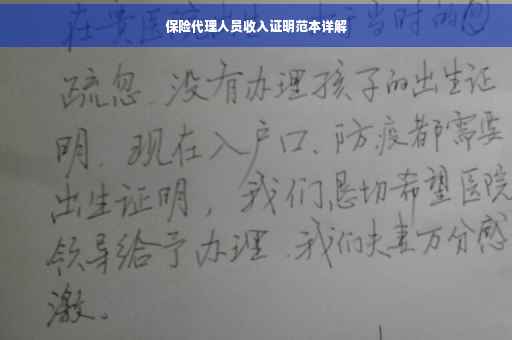 保险代理人员收入证明范本详解
在贵医院 于当时的
疏忽、没有办理孩子的出生证
明、现在入户口、防疫都需要
出生证明,我们恳切希望医院
领导给予办理、我们夫妻万分感
激。